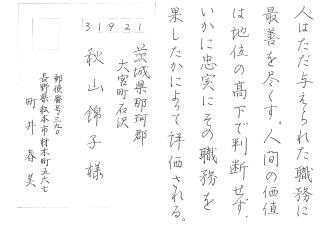 人はただ与えられた職務に
最善を尽くす。人間の価値
は地位の高下で判断せず、
いかに忠実にその職務を
果したかによって評価される。
31921
茨城県那珂郡
大宮町石沢
秋山錦子様
郵便番号三九〇
長野県松本市材木町五六七
町井春美